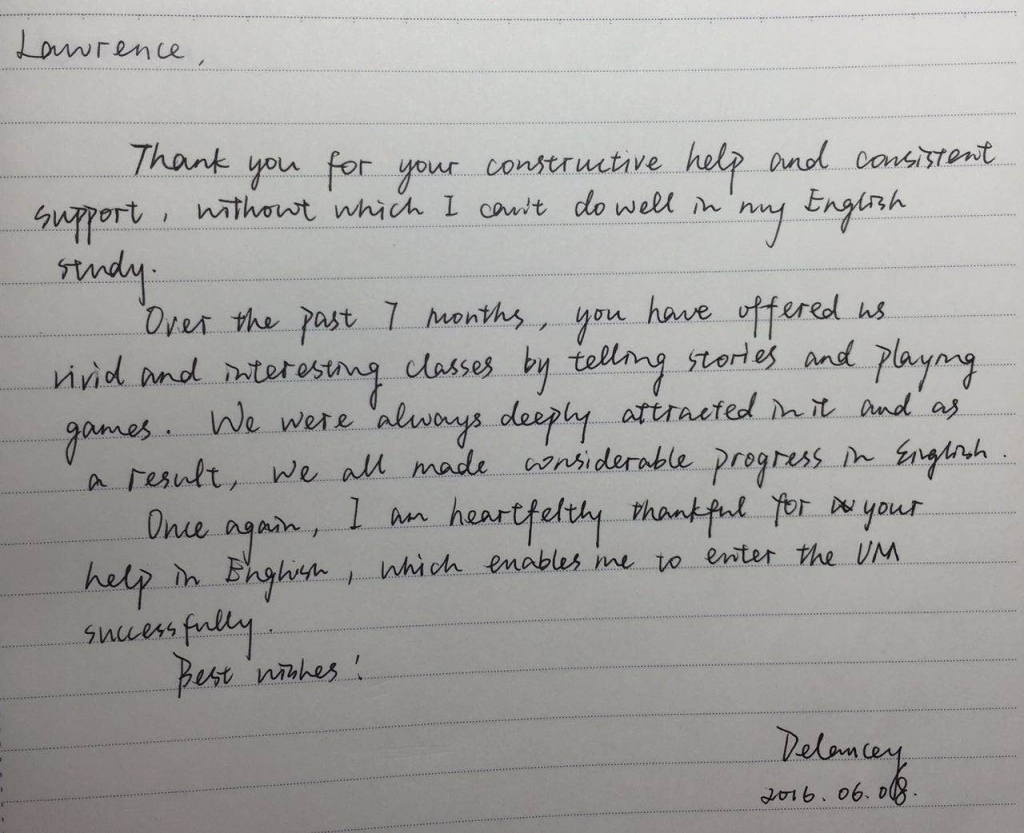 Lawrence,
Thank you for your constructive help and consistent
support, without which I can't do well in my English
study.
Over the past 7 months, you have offered us
vivid and interesting classes by telling stories and playing
games. We were always deeply attracted in it and as
a result, we all made considerable progress in English.
Once again, I am heartfeltly thankful for your
help in English, which enables me to enter the UM
successfully.
Best wishes!
Delancey
2016.06.08.